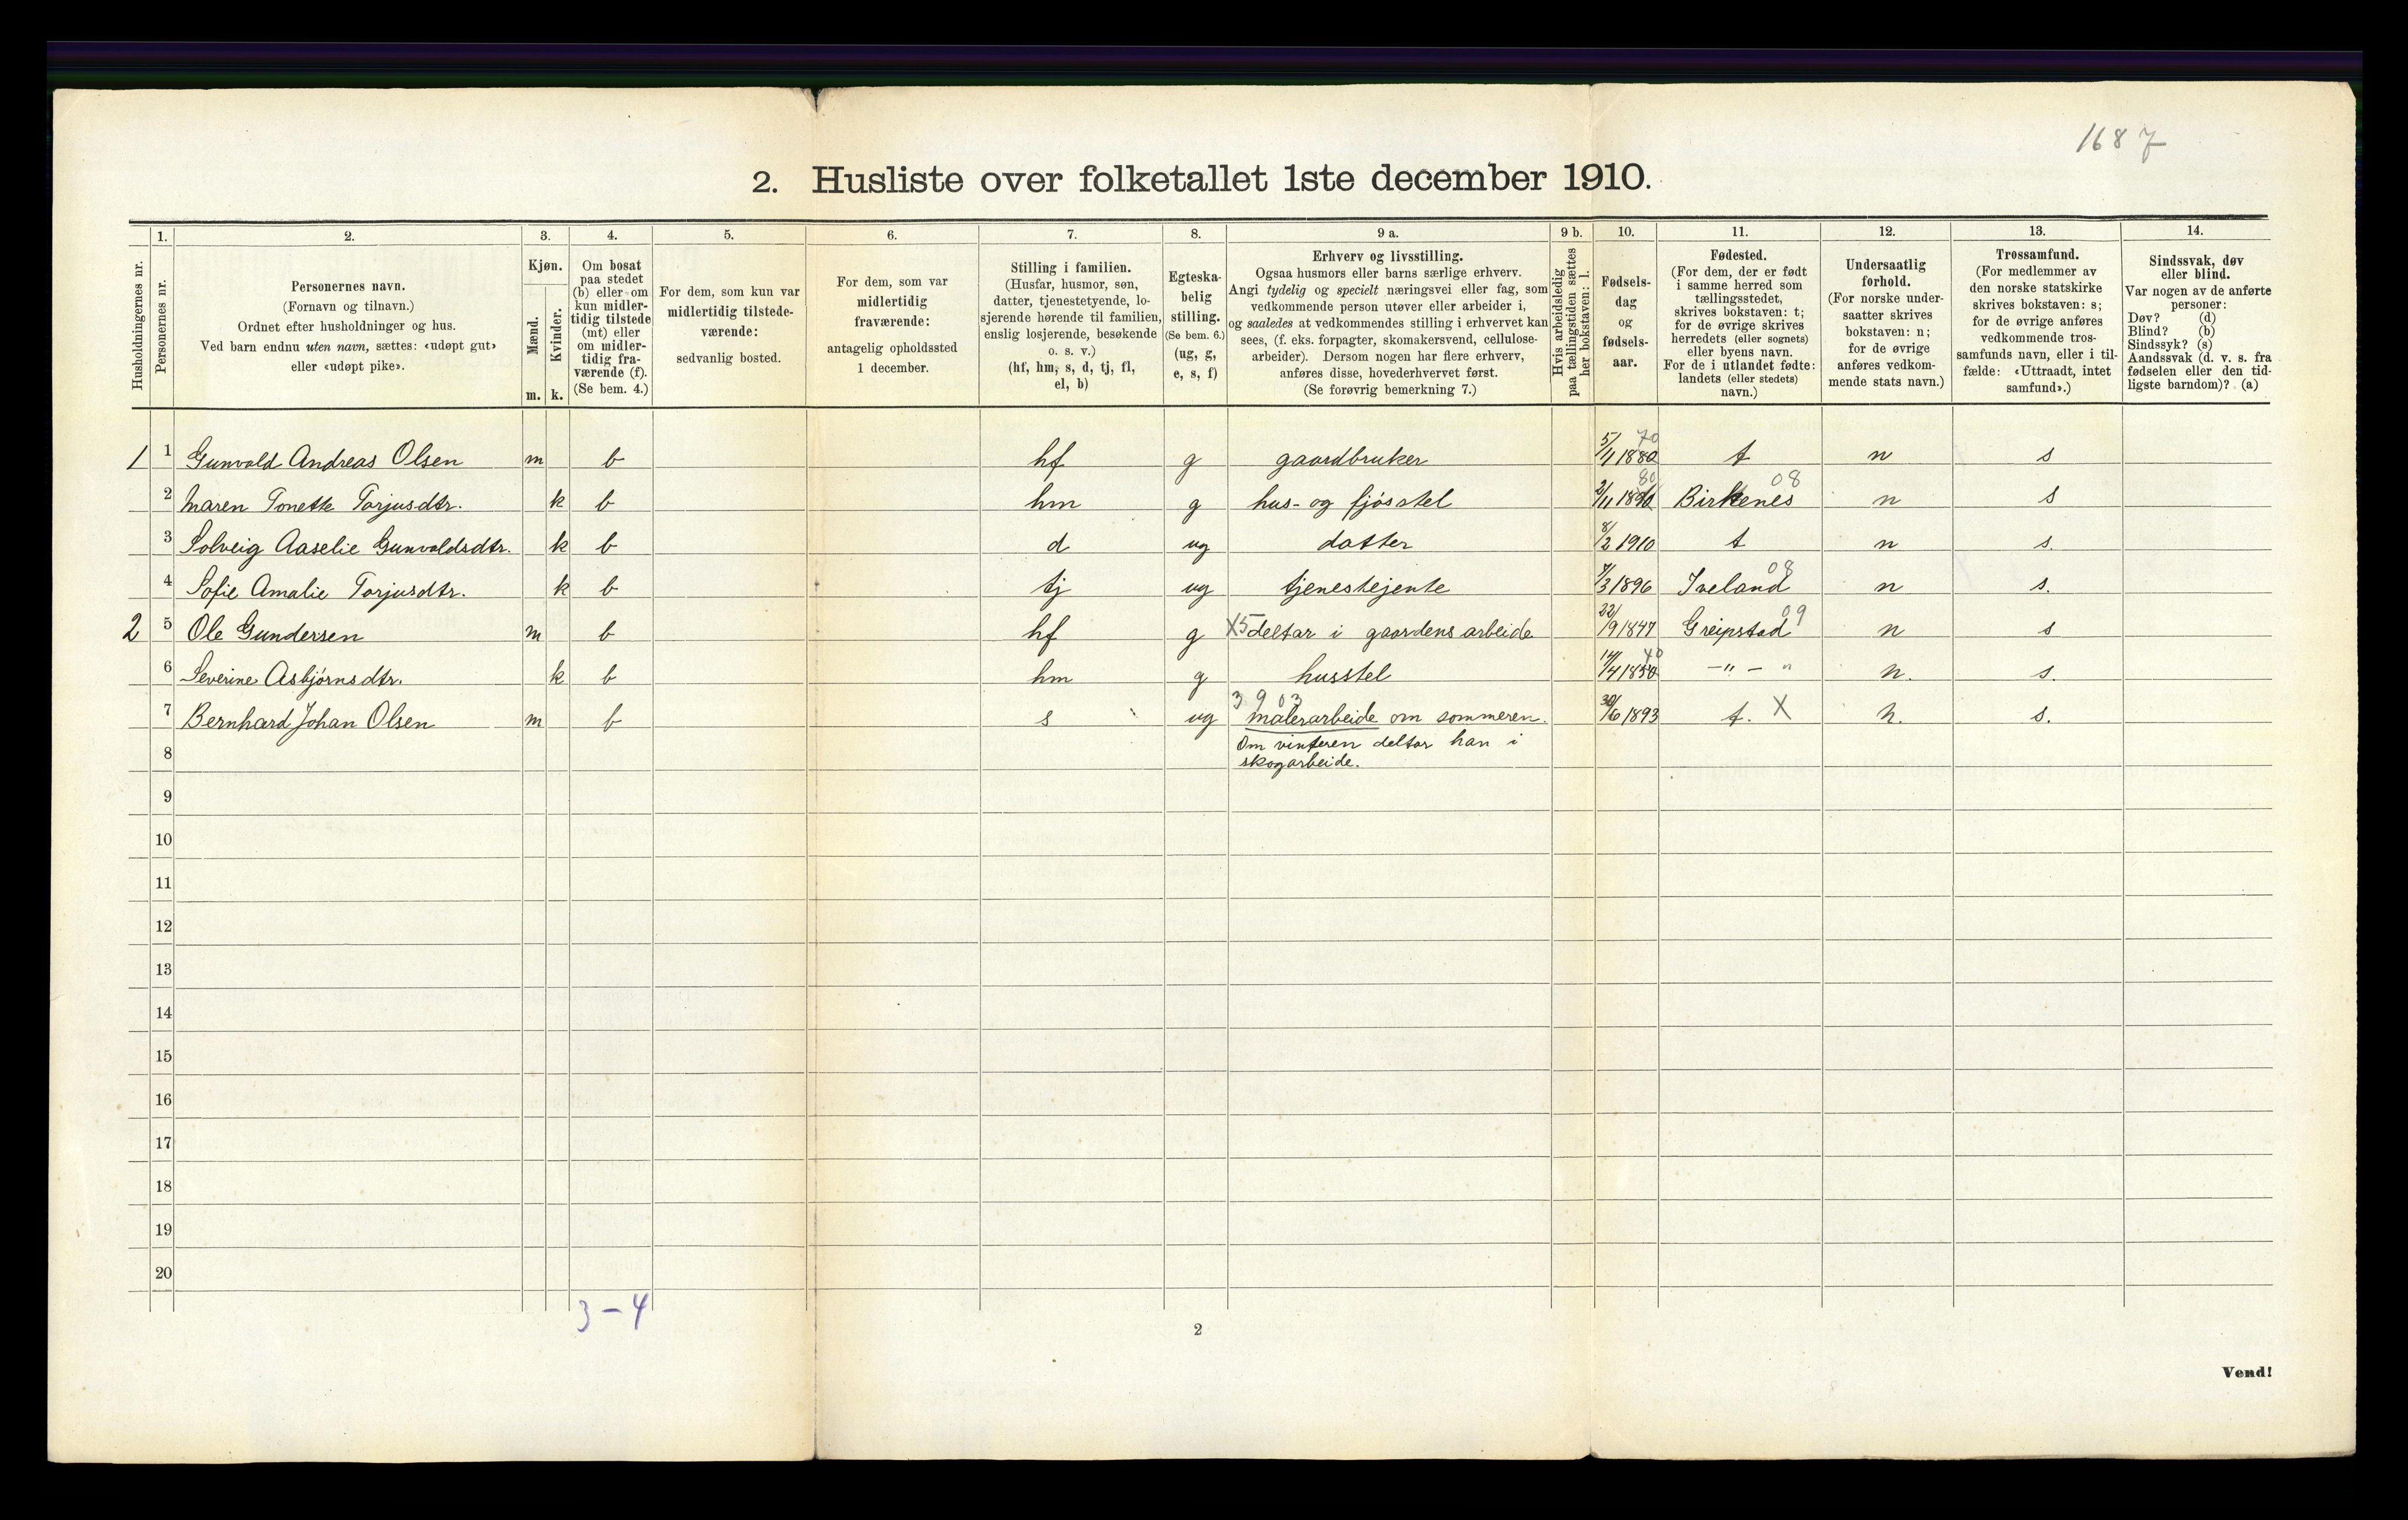 1687
2. Husliste over folketallet 1ste december 1910.
Husholdningernes nr.
1.
Personernes nr.
2.
Personernes navn.
(Fornavn og tilnavn.)
Ordnet efter husholdninger og hus.
Ved barn endnu uten navn, sættes: «udøpt gut»
eller «udøpt pike».
3.
Kjøn.
Mænd.
Kvinder.
m. k.
4.
Om bosat
paa stedet
(b) eller om
kun midler-
tidig tilstede
(mt) eller
om midler-
tidig fra-
værende (f).
(Se bem. 4.)
5.
For dem, som kun var
midlertidig tilstede-
værende:
sedvanlig bosted.
6.
For dem, som var
midlertidig
fraværende:
antagelig opholdssted
1 december.
7.
Stilling i familien.
(Husfar, husmor, søn,
datter, tjenestetyende, lo-
sjerende hørende til familien,
enslig losjerende, besøkende
o. s. v.)
(hf, hm, s, d, tj, fl,
el, b)
8.
Egteska-
belig
stilling.
(Se bem. 6.)
(ug, g,
e, s, f)
9 a.
Erhverv og livsstilling.
Ogsaa husmors eller barns særlige erhverv.
Angi tydelig og specielt næringsvei eller fag, som
vedkommende person utøver eller arbeider i,
og saaledes at vedkommendes stilling i erhvervet kan
sees, (f. eks. forpagter, skomakersvend, cellulose-
arbeider). Dersom nogen har flere erhverv,
anføres disse, hovederhvervet først.
(Se forøvrig bemerkning 7.)
9 b.
Hvis arbeidsledig
paa tællingstiden sættes
her bokstaven: l.
10.
Fødsels-
dag
og
fødsels-
aar.
11.
Fødested.
(For dem, der er født
i samme herred som
tællingsstedet,
skrives bokstaven: t;
for de øvrige skrives
herredets (eller sognets)
eller byens navn.
For de i utlandet fødte:
landets (eller stedets)
navn.)
12.
Undersaatlig
forhold.
(For norske under-
saatter skrives
bokstaven: n;
for de øvrige
anføres vedkom-
mende stats navn.)
13.
Trossamfund.
(For medlemmer av
den norske statskirke
skrives bokstaven: s;
for de øvrige anføres
vedkommende tros-
samfunds navn, eller i til-
fælde: «Uttraadt, intet
samfund».)
14.
Sindssvak, døv
eller blind.
Var nogen av de anførte
personer:
Døv? (d)
Blind? (b)
Sindssyk? (s)
Aandssvak (d. v. s. fra
fødselen eller den tid-
ligste barndom)? (a)
70
1 1 Gunvald Andreas Olsen m b hf g gaardbruker 5/11 1880 t n s
80 08
2 Maren Tonette Torjusdtr. k b hm g hus- og fjøsstel 2/11 1890 Birkenes n s
3 Solveig Aaselie Gunvoldsdtr. k b d ug datter 8/2 1910 t n s.
08
4 Sofie Amalie Torjusdtr. k b tj ug tjenestejente 7/3 1896 Iveland n s.
09
2 5 Ole Gundersen m b hf g X5 deltar i gaardens arbeide 22/9 1847 Greipstad n s
40
6 Severine Asbjørnsdtr. k b hm g husstel 14/4 1850 –"– " n. s.
3903
7 Bernhard Johan Olsen m b s ug malerarbeide om sommeren. 30/6 1893 t. X n. s.
8 Om vinteren deltar han i
skogarbeide.
9
10
11
12
13
14
15
16
17
18
19
20
3–4
2
Vend!